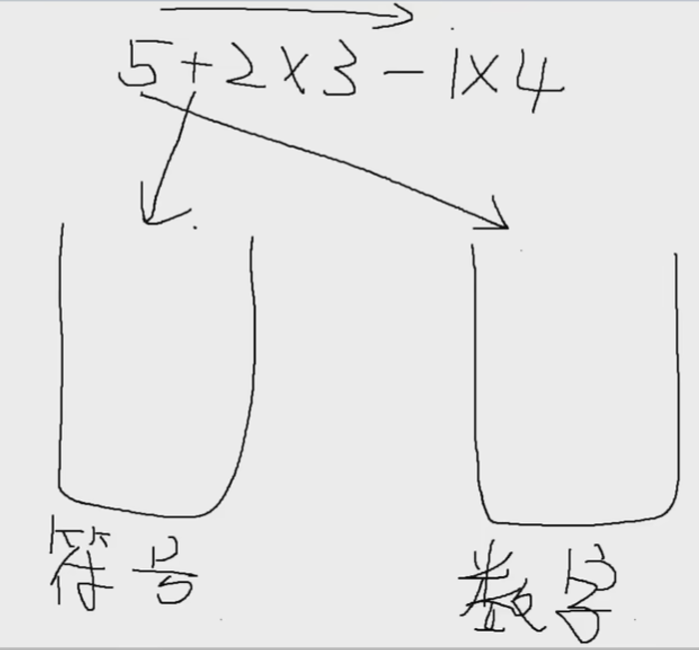 5+2×3-1×4
符号
数字